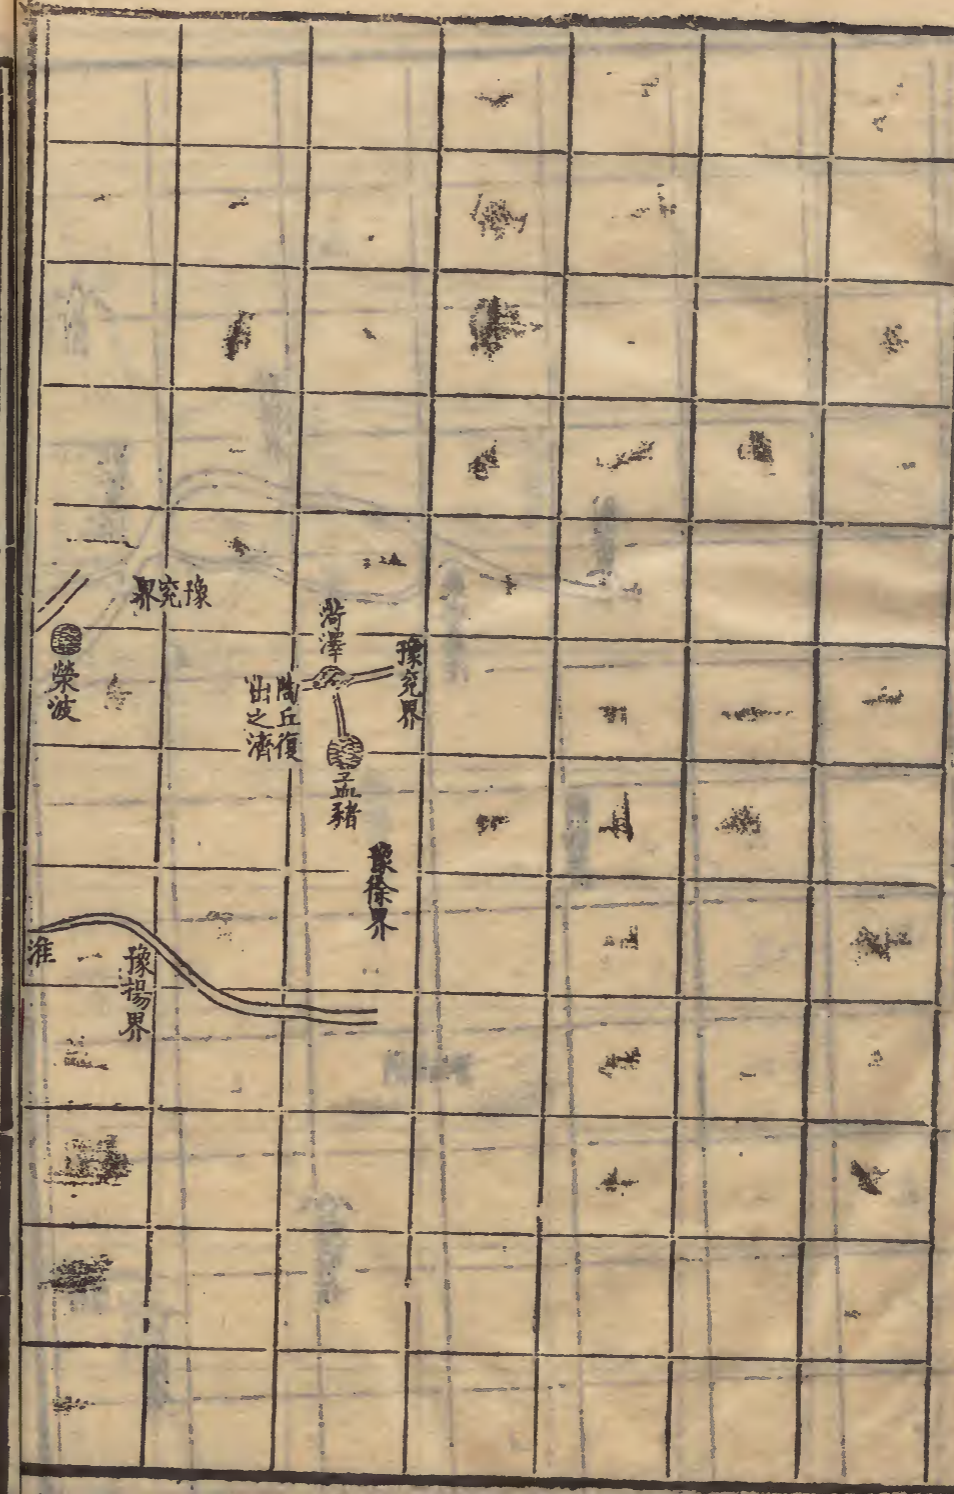 豫兖界
滎波
菏澤
豫兖界
陶丘復
出之濟
孟豬
豫徐界
淮
豫揚界